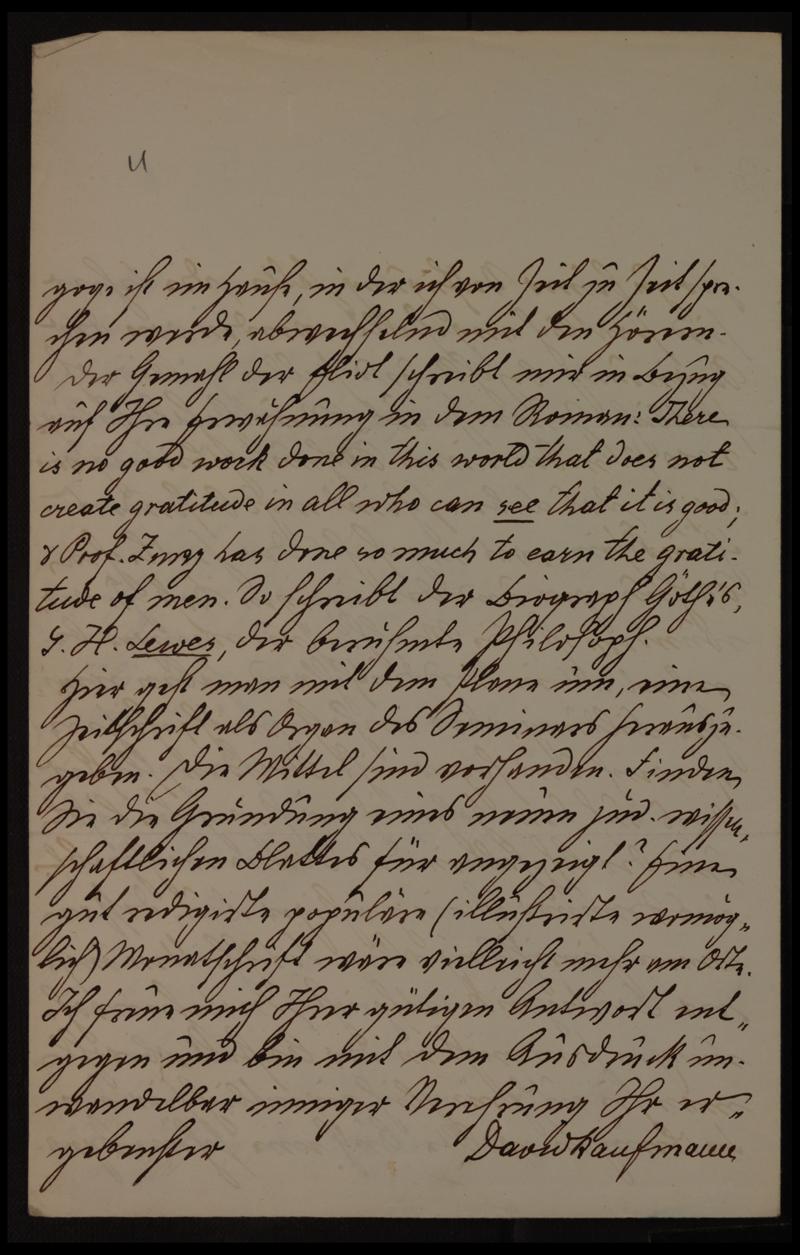 goge ist im Hause, in der ich von Zeit zu Zeit spre-
chen werde, abwechselnd mit den Hörern.
Der Gemahl der Eliot schreibt mir in Bezug
auf Ihre Erwähnung in dem Roman: There
is no good work done in this world that does not
create gratitude in all who can see that it is good;
& Prof. Zunz has done so much to earn the grati-
tude of men. So schreibt der Biograph Göthe's,
G. H. Lewes, der berühmte Philosoph.
Hier geht man mit dem Plane um, eine
Zeitschrift als Organ des Seminars herauszu-
geben. Die Mittel sind vorhanden. Finden
Sie die Gründung eines neuen jüd. wissen-
schaftlichen Blattes für angezeigt? Eine
gut redigirte populäre (illustrirte womög-
lich) Monatschrift wäre vielleicht mehr am Orte.
Ich freue mich Ihrer gütigen Antwort ent-
gegen und bin mit dem Ausdruck un-
wandelbar inniger Verehrung Ihr er-
gebenster David Kaufmann